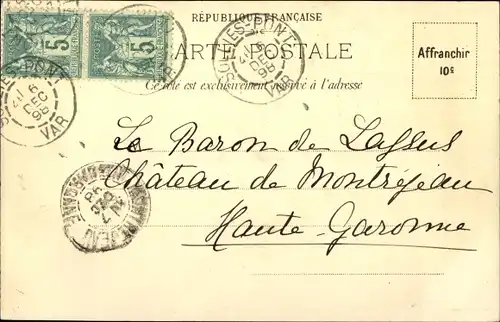 RÉPUBLIQUE FRANÇAISE
CARTE POSTALE
Ce côté est exclusivement réservé à l'adresse
Affranchir
10c
5
5
VAR
VAR
Le Baron de Lassus
Château de Montréjeau
Haute-Garonne